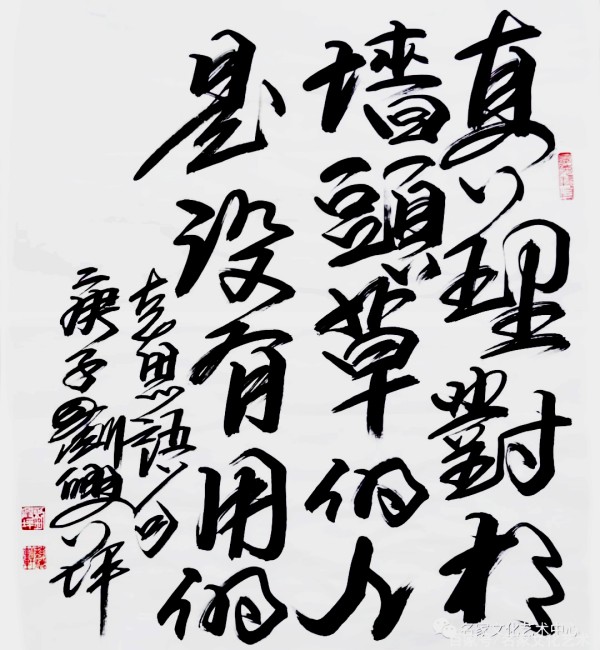 真理對於
墻頭草的人
是没有用的
思語句
庚子劉
名家文化艺术中心